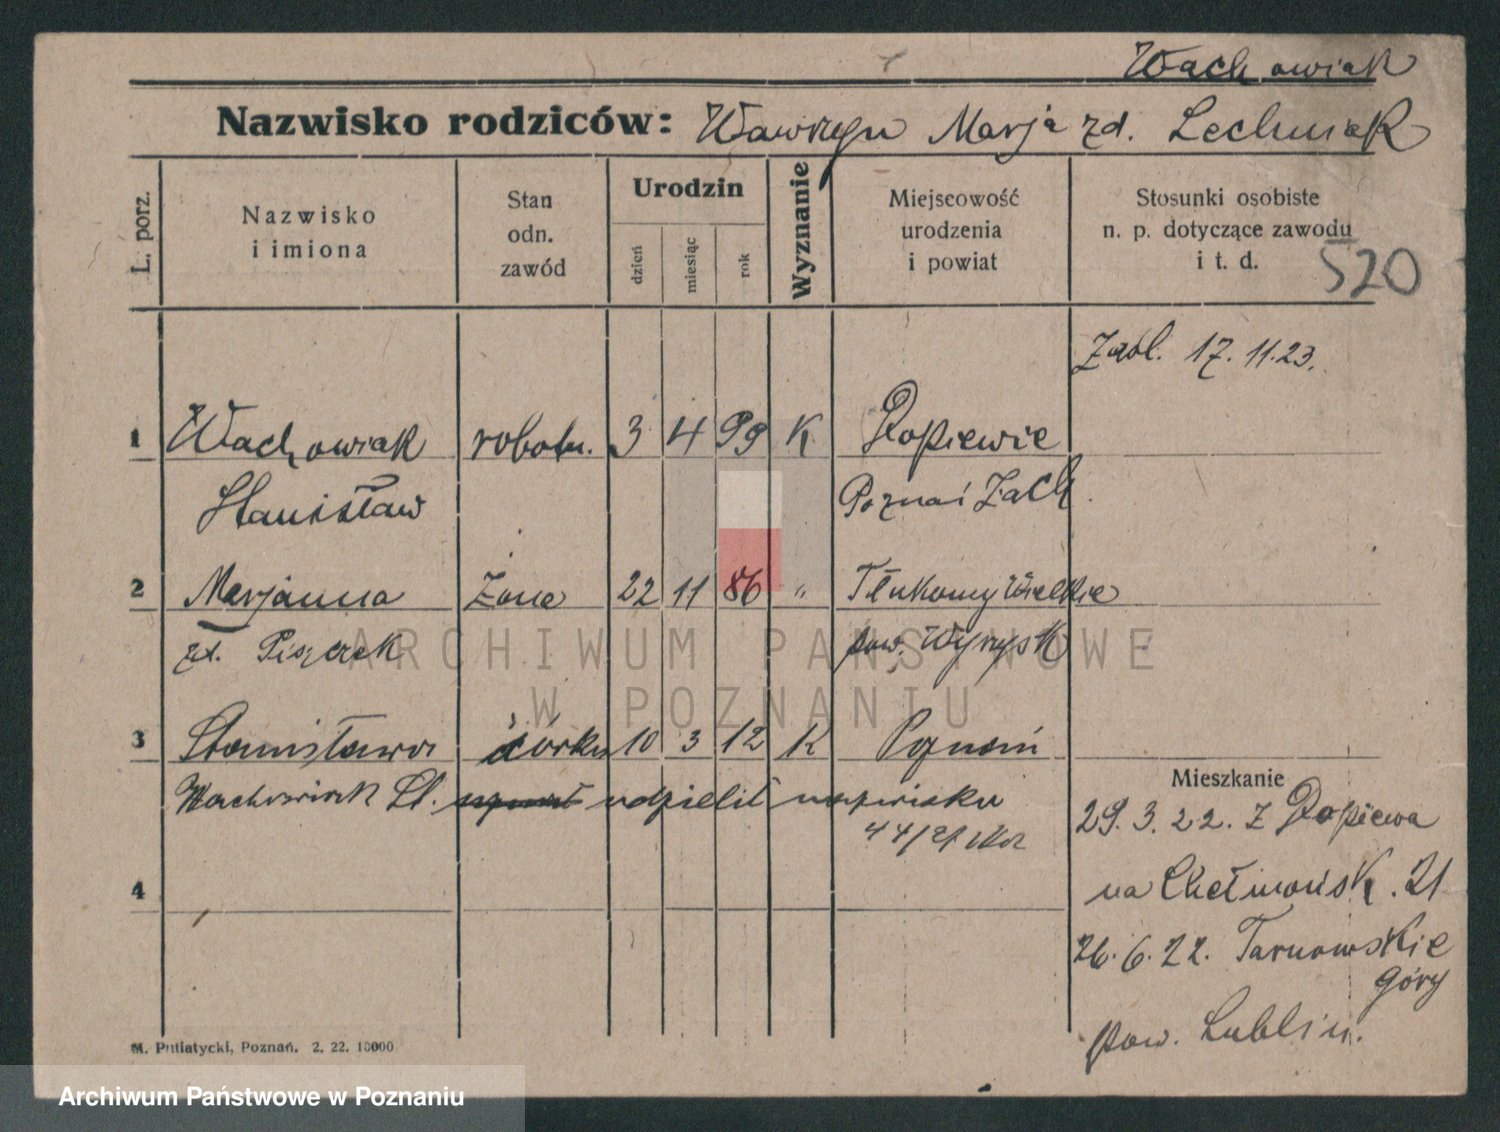 Wachowiak
Nazwisko rodziców: Wawrzyn Marja zd. Lechniak
L. porz.
Nazwisko
i imiona
Stan
odn.
zawód
Urodzin
dzień
miesiąc
rok
Wyznanie
Miejscowość
urodzenia
i powiat
Stosunki osobiste
n. p. dotyczące zawodu
i t. d.
520
17.11.23.
1 Wachowiak robotn. 3 4 99 K Dopiewie
Stanisław Poznań Zach.
2 Marjanna Żona 22 11 86 " Tłukomy Wielkie
zd. Piszczek pow. Wyrzysk
3 Stanisława córka 10 3 12 K Poznań
Wachowiak St. udzielił nazwiska
Mieszkanie
29.3.22. z Dopiewa
na Chełmońsk. 21
4
26.6.22. Tarnowskie
Góry
pow. Lublin.
M. Putiatycki, Poznań. 2. 22. 10000
ARCHIWUM PAŃSTWOWE
W POZNANIU
Archiwum Państwowe w Poznaniu